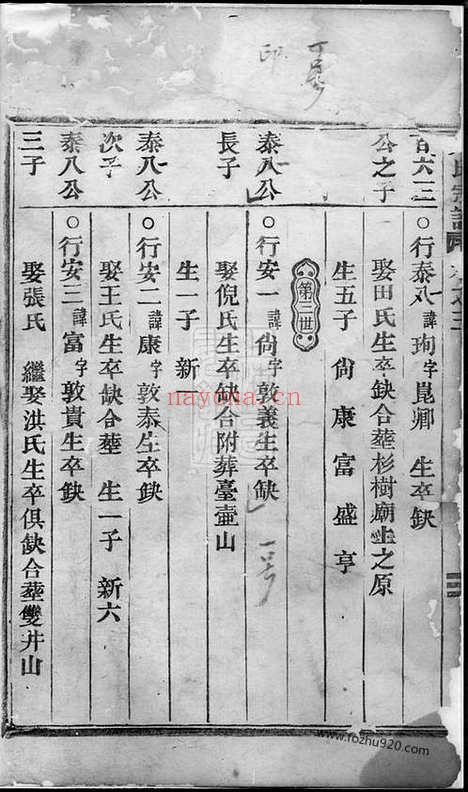 一号
印
百六三公之子
○行泰八諱珣字崑卿 生卒缺
娶田氏生卒缺合塟杉樹廟坐之原
生五子 尙 康 富 盛 亨
第三世
泰八公長子
○行安一諱尙字敦義生卒缺
娶倪氏生卒缺合附葬臺壷山
生一子 新一
泰八公次子
○行安二諱康字敦泰生卒缺
娶王氏生卒缺合塟 生一子 新六
泰八公三子
○行安三諱富字敦貴生卒缺
娶張氏 繼娶洪氏生卒俱缺合塟雙井山
一号
nayona.cn
www.fozhu920.com